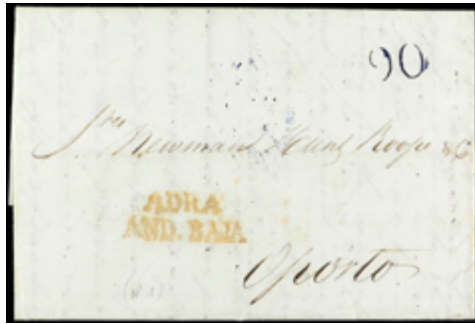 90
Sres Newman Hunt Roope & Co
ADRA
AND. BAJA
Oporto